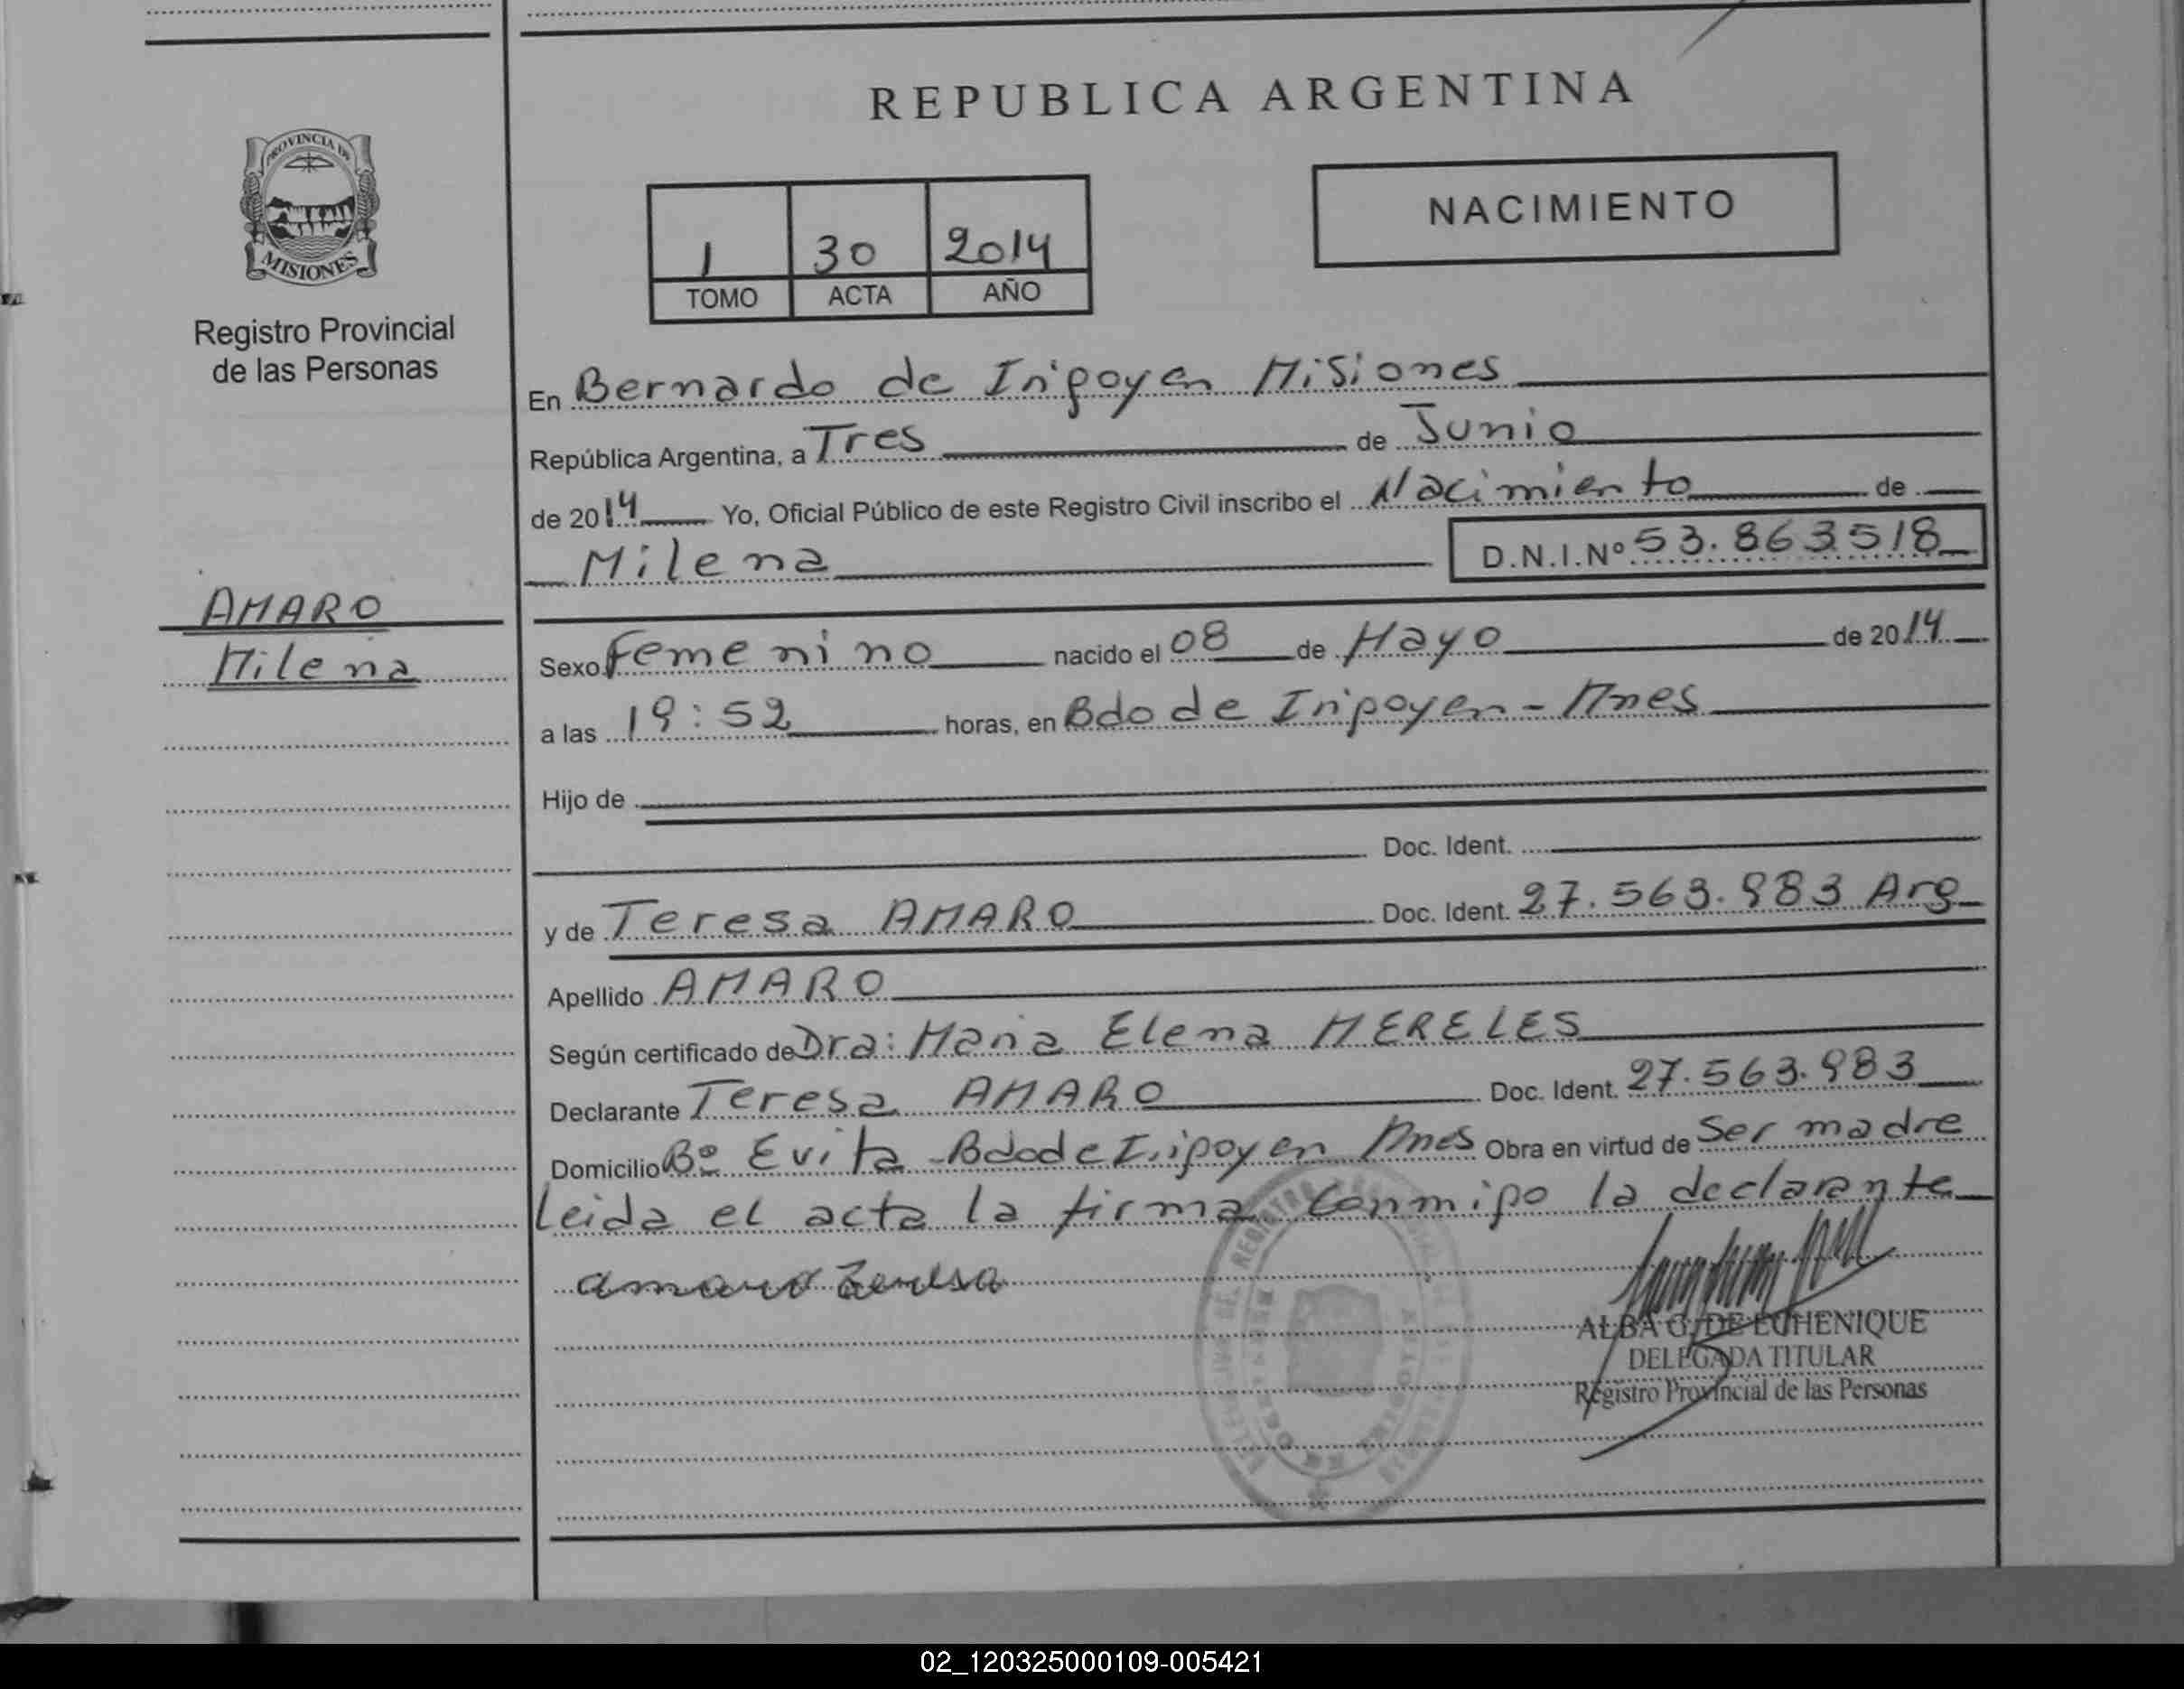 REPUBLICA ARGENTINA
PROVINCIA DE
MISIONES
Registro Provincial
de las Personas
NACIMIENTO
1 30 2014
TOMO ACTA AÑO
En Bernardo de Irigoyen Misiones
República Argentina, a Tres de Junio
de 2014 Yo, Oficial Público de este Registro Civil inscribo el Nacimiento de
Milena D.N.I.Nº 53.863518
AMARO
Milena
Sexo Femenino nacido el 08 de Mayo de 2014
a las 19:52 horas, en Bdo de Irigoyen - Mnes
Hijo de
Doc. Ident.
y de Teresa AMARO Doc. Ident. 27.563.983 Arg
Apellido AMARO
Según certificado de Dra: Maria Elena MERELES
Declarante Teresa AMARO Doc. Ident. 27.563.983
Domicilio Bº Evita - Bdo de Irigoyen Mnes Obra en virtud de Ser madre
Leida el acta la firma conmigo la declarante
amaro Teresa
ALBA G. DE ECHENIQUE
DELEGADA TITULAR
Registro Provincial de las Personas
02_120325000109-005421